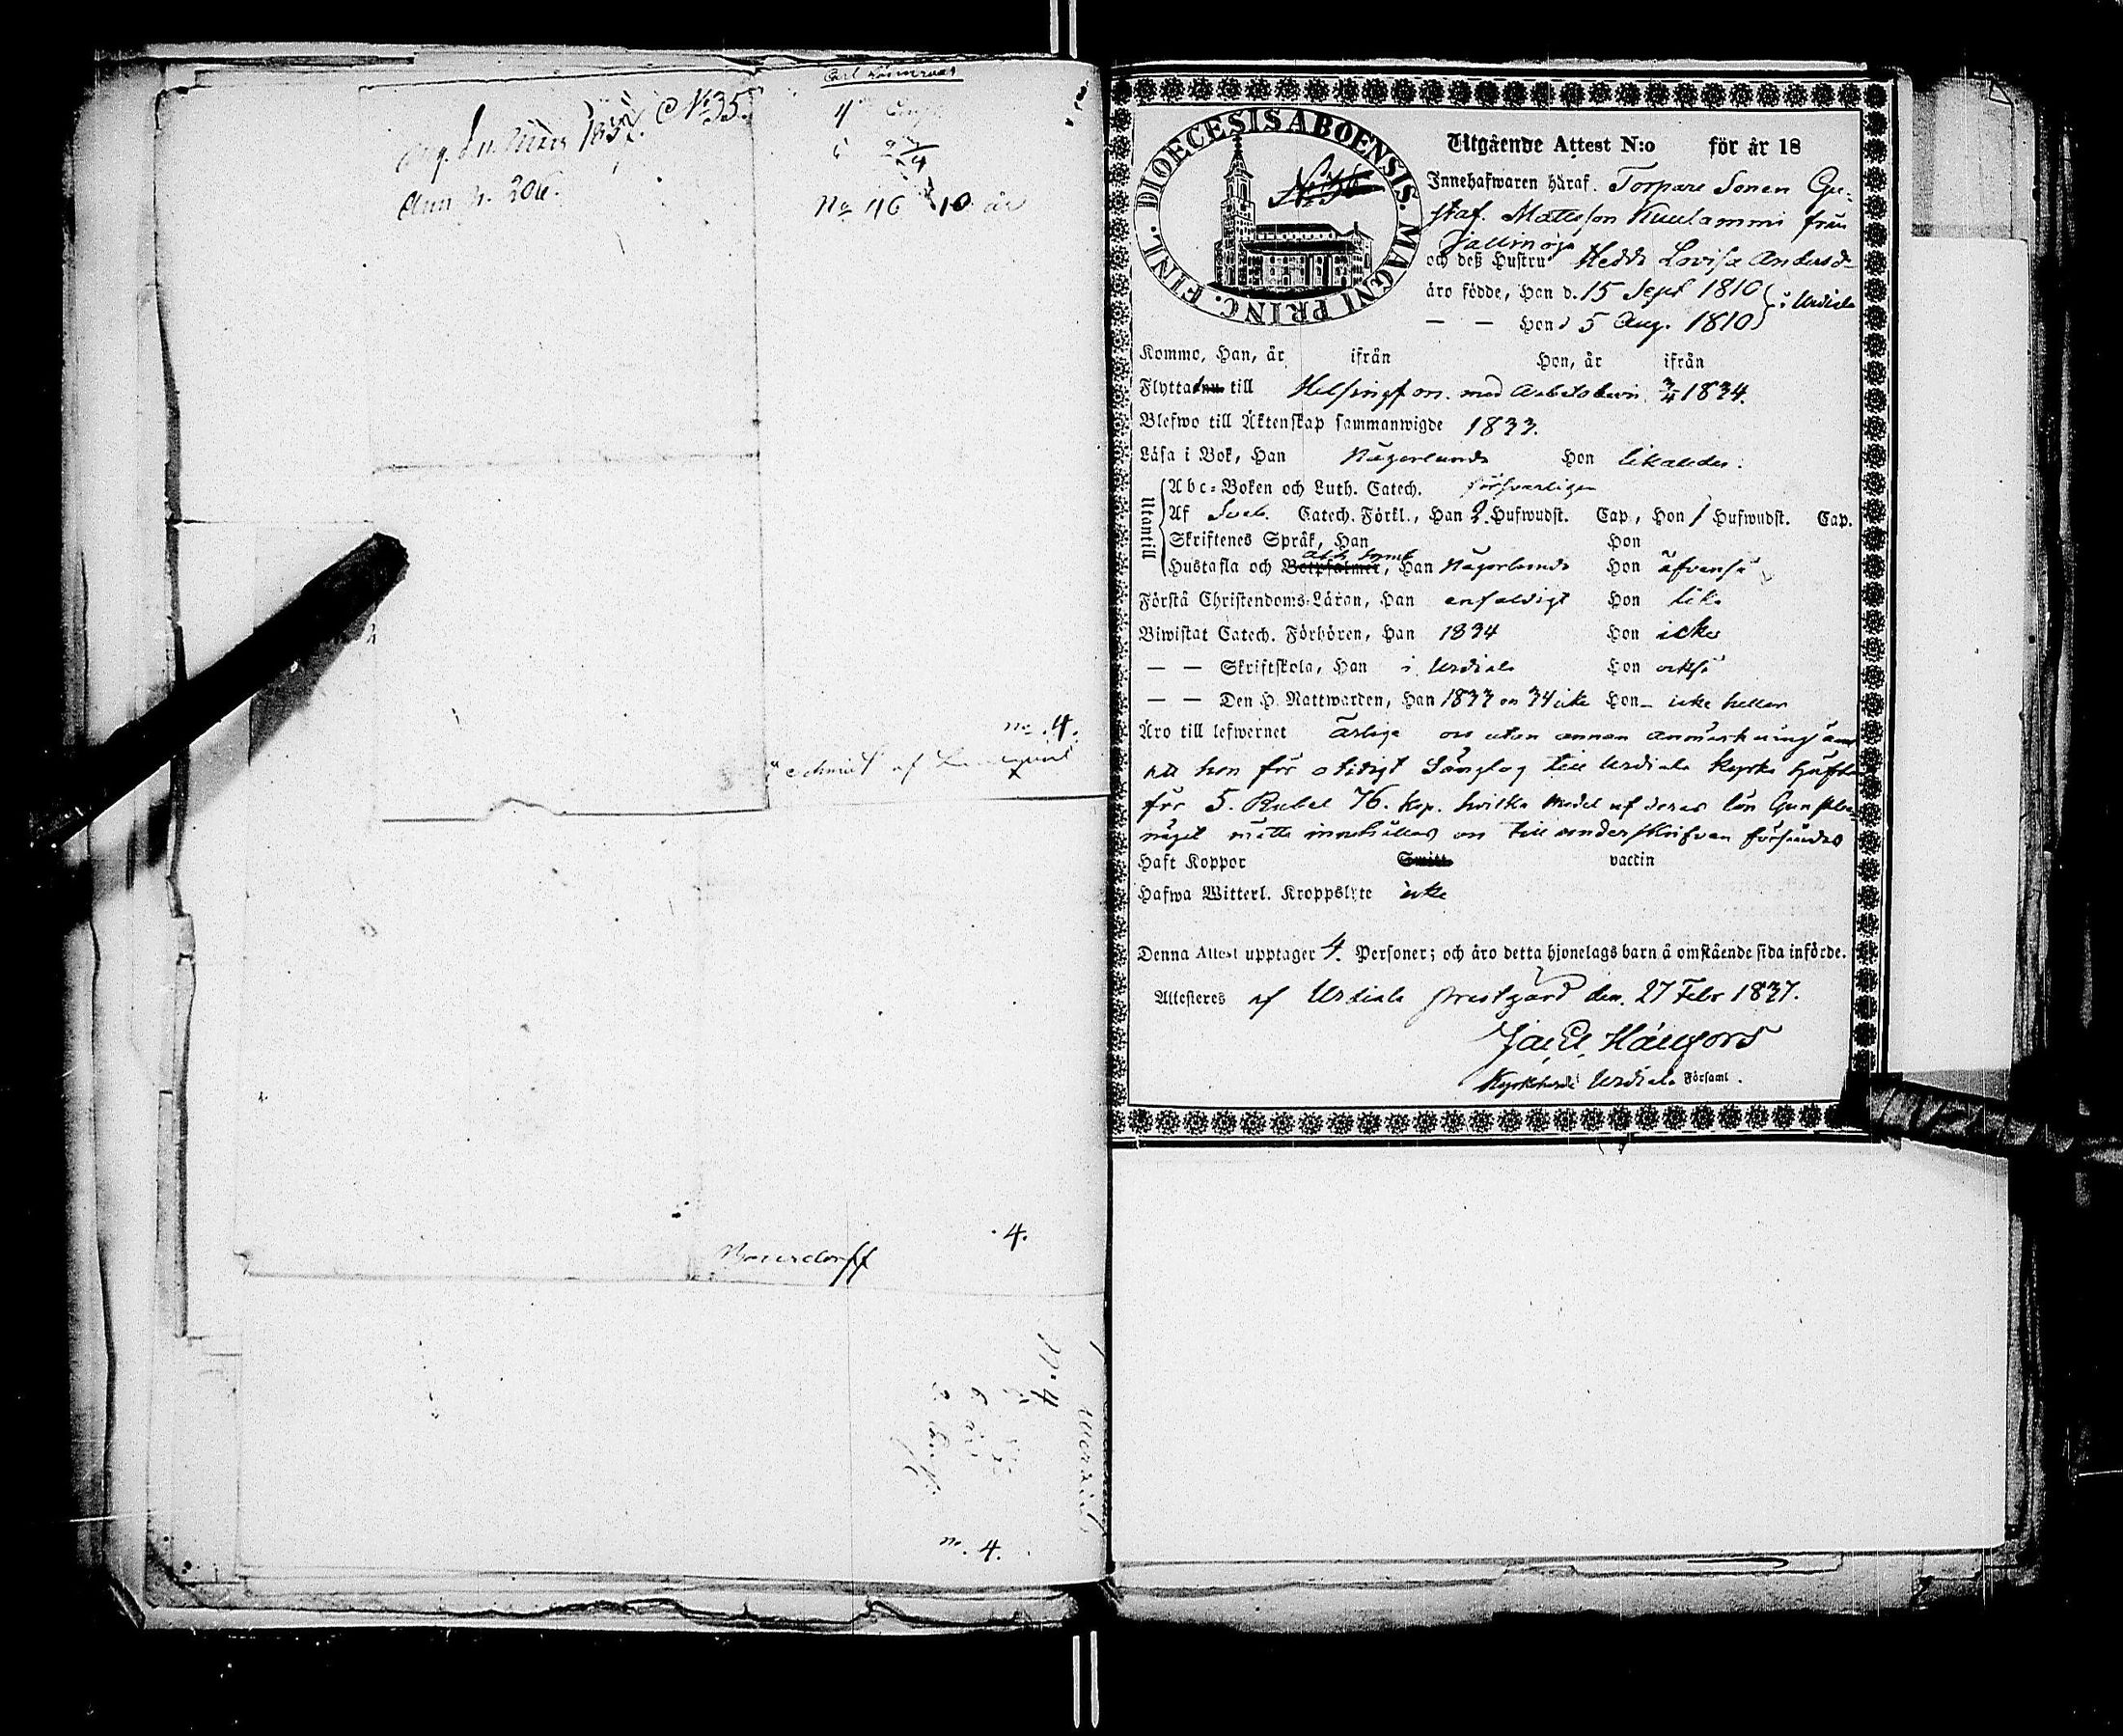 Ang. d. 11. Mars 1837. No 35.
Ann. p. 206.
Carl
4
No 116 10 år
no. 4.
Schmidt af
4.
No. 4
m. 4.
DIOECESIS ABOENSIS. MAGNI PRINC. FINL.
Utgående Attest N:o för år 18
Innehafwaren häraf. Torpare Sonen Gu-
staf. Mattsson Kuulammi från
och deß Hustru Hedda Lovisa Andersdr
äro födde, Han d. 15 Sept 1810 i Urdiala
— — Hon d 5 Aug. 1810
Kommo, Han, år ifrån Hon, år ifrån
Flytta till Helsingfors. med Arbetsbevis 3/4 1834.
Blefwo till Äktenskap sammanwigde 1833.
Läsa i Bok, Han Någorlunda Hon likaledes.
Utantill
Abc-Boken och Luth. Catech. försvarligen
Af Sveb. Catech. Förkl., Han 2. Hufwudst. Cap., Hon 1 Hufwudst. Cap.
Skriftenes Språk, Han Hon
Hustafla och Botpsalmer, Han Någorlunda Hon äfvenså
Förstå Christendoms-Läran, Han enfaldigt Hon lika
Biwistat Catech. Förhören, Han 1834 Hon icke
— — Skriftskola, Han i Urdiala Hon också
— — Den H. Nattwarden, Han 1833 en 34 icke Hon icke heller
Äro till lefwernet ärliga os utan annan anmärkning än
att hon för otidigt Sänglag till Urdiala Kyrka häftar
för 5. Rubel 76. Kop. hvilka medel af deras lön
måtte innehållas os till underskrifvan försändas
Haft Koppor Smitt. vaccin
Hafwa Witterl. Kroppslyte icke
Denna Attest upptager 4. Personer; och äro detta hjonelags barn å omstående sida införde.
Attesteres af Urdiala prestgård den. 27 Febr 1837.
Kyrkoherde i Urdiala Församl.